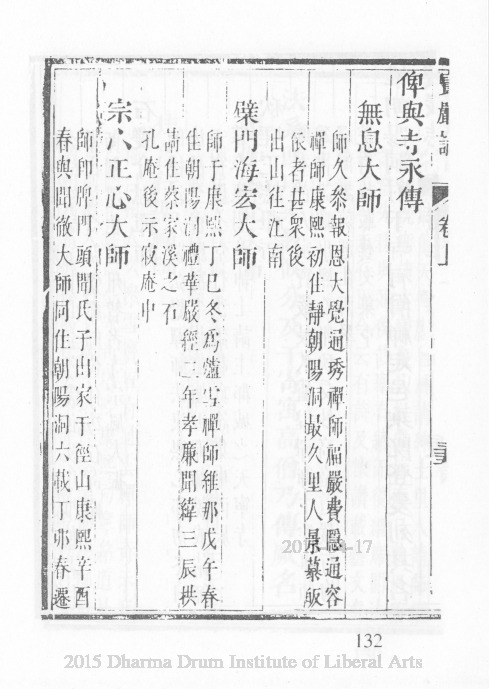 俾與寺永傳
無息大師
師久叅報恩大覺通琇禪師福嚴費隱通容
禪師康熙初住靜朝陽洞最久里人景慕皈
依者甚衆後
出山往江南
檗門海宏大師
師于康熙丁巳冬爲爐雪禪師維那戊午春
住朝陽洞禮華嚴經三年孝廉聞緯三辰拱
請住蔡家溪之石
孔庵後示寂庵中
宗六正心大師
師卽牌門頭聞氏子出家于徑山康熙辛酉
春與聞徹大師同住朝陽洞六載丁卯春遷
卷上
132
2015 Dharma Drum Institute of Liberal Arts